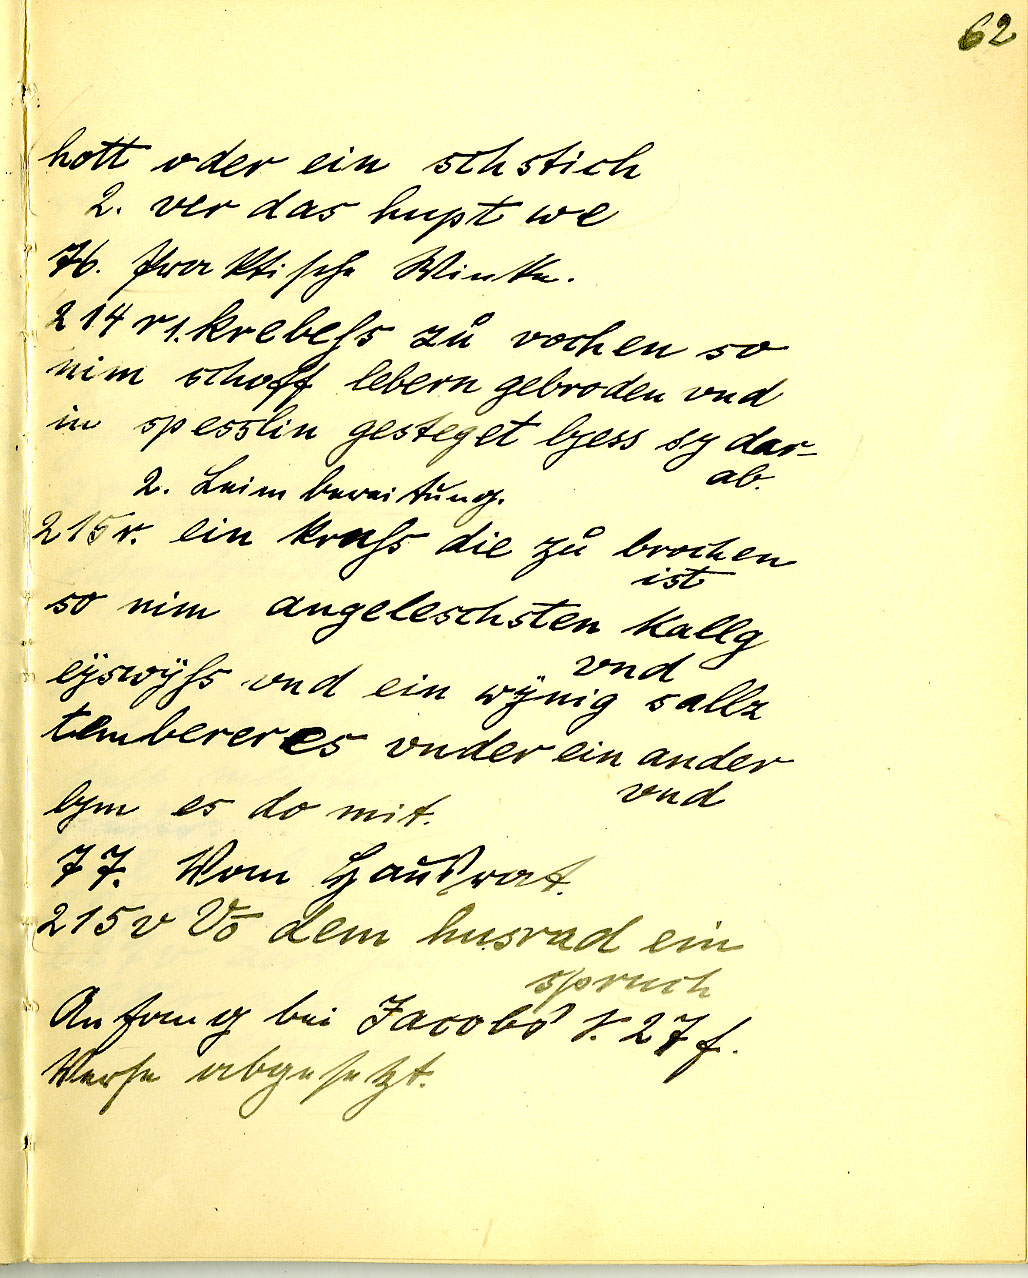 62
hott oder ein schstich
2. ver das hupt we
76. Praktische Winke.
214 r 1. krebeſs zů vochen so
nim schoff lebern gebroden vnd
in spesslin gesteget lyess sy dar-
ab.
2. Leimbereitung.
215r. ein kruſs die zů brochen
ist
so nim angeleschsten kallg
vnd
eÿswÿſs vnd ein wÿnig sallz
temberer es vnder ein ander
vnd
lym es do mit.
77. Vom Hausrat.
215v Vō dem husrad ein
spruch
Anfang bei Jacobs S. 27 f.
Verse abgesetzt.